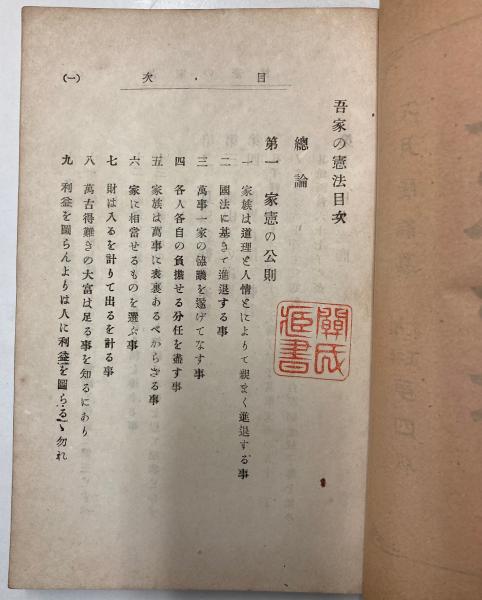 吾家の憲法目次
總論
第一 家憲の公則
一 家族は道理と人情とによりて親まく進退する事
二 國法に基きて進退する事
三 萬事一家の協議を遂げてなす事
四 各人各自の負擔せる分任を盡す事
五 家族は萬事に表裏あるべからざる事
六 家に相當せるものを選ぶ事
七 財は入るを計りて出るを計る事
八 萬古得難きの大富は足る事を知るにあり
九 利益を圖らんよりは人に利益を圖らるゝ勿れ
目・次
(一)
關氏
臧書